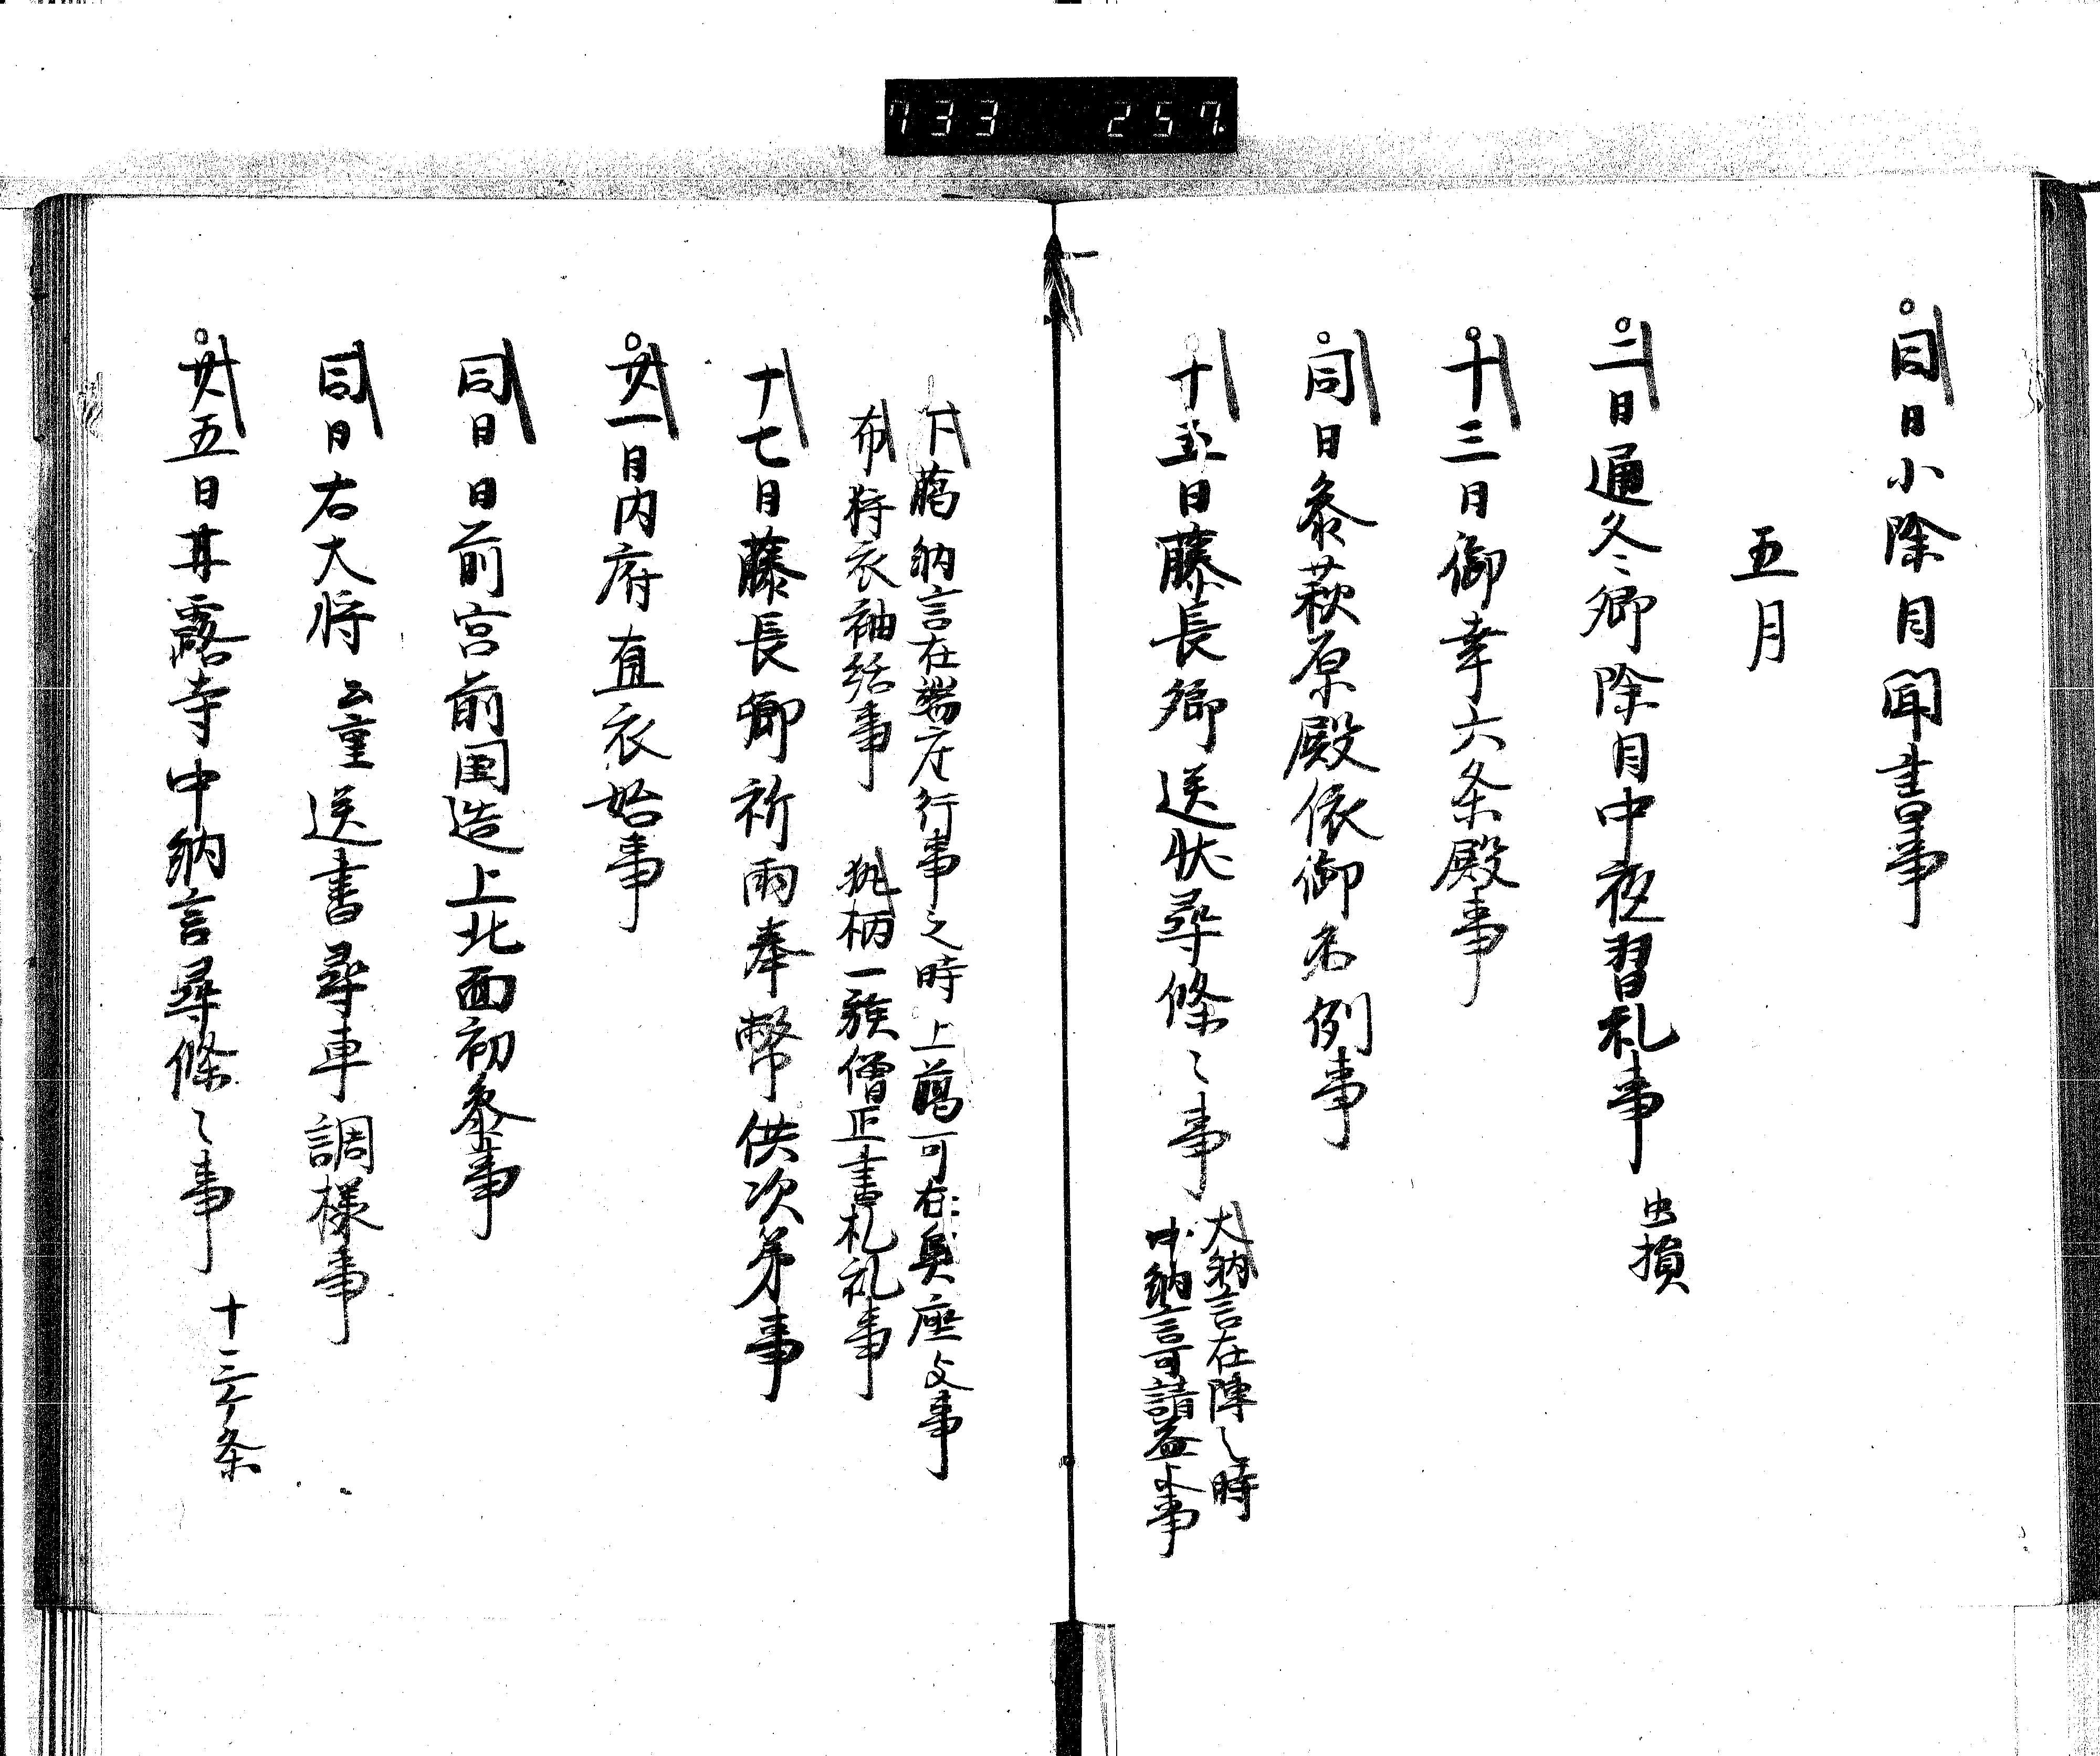 733 257
同日小除目聞書事
五月
二日通冬卿除目中夜習礼事 虫損
十三日御幸六条殿事
同日参萩原殿依御名例事
十五日藤長卿送状尋條々事 大納言在陣之時
中納言可請益哉事
下﨟納言在端座行事之時上﨟可在奥座哉事
布狩衣袖結事 執柄一族僧正書札礼事
十七日藤長卿祈雨奉幣供次第事
廿一日内府直衣始事
同日日前宮前国造上北面初参事
同日右大将公重送書尋車調様事
廿五日甘露寺中納言尋條々事 十三ケ条